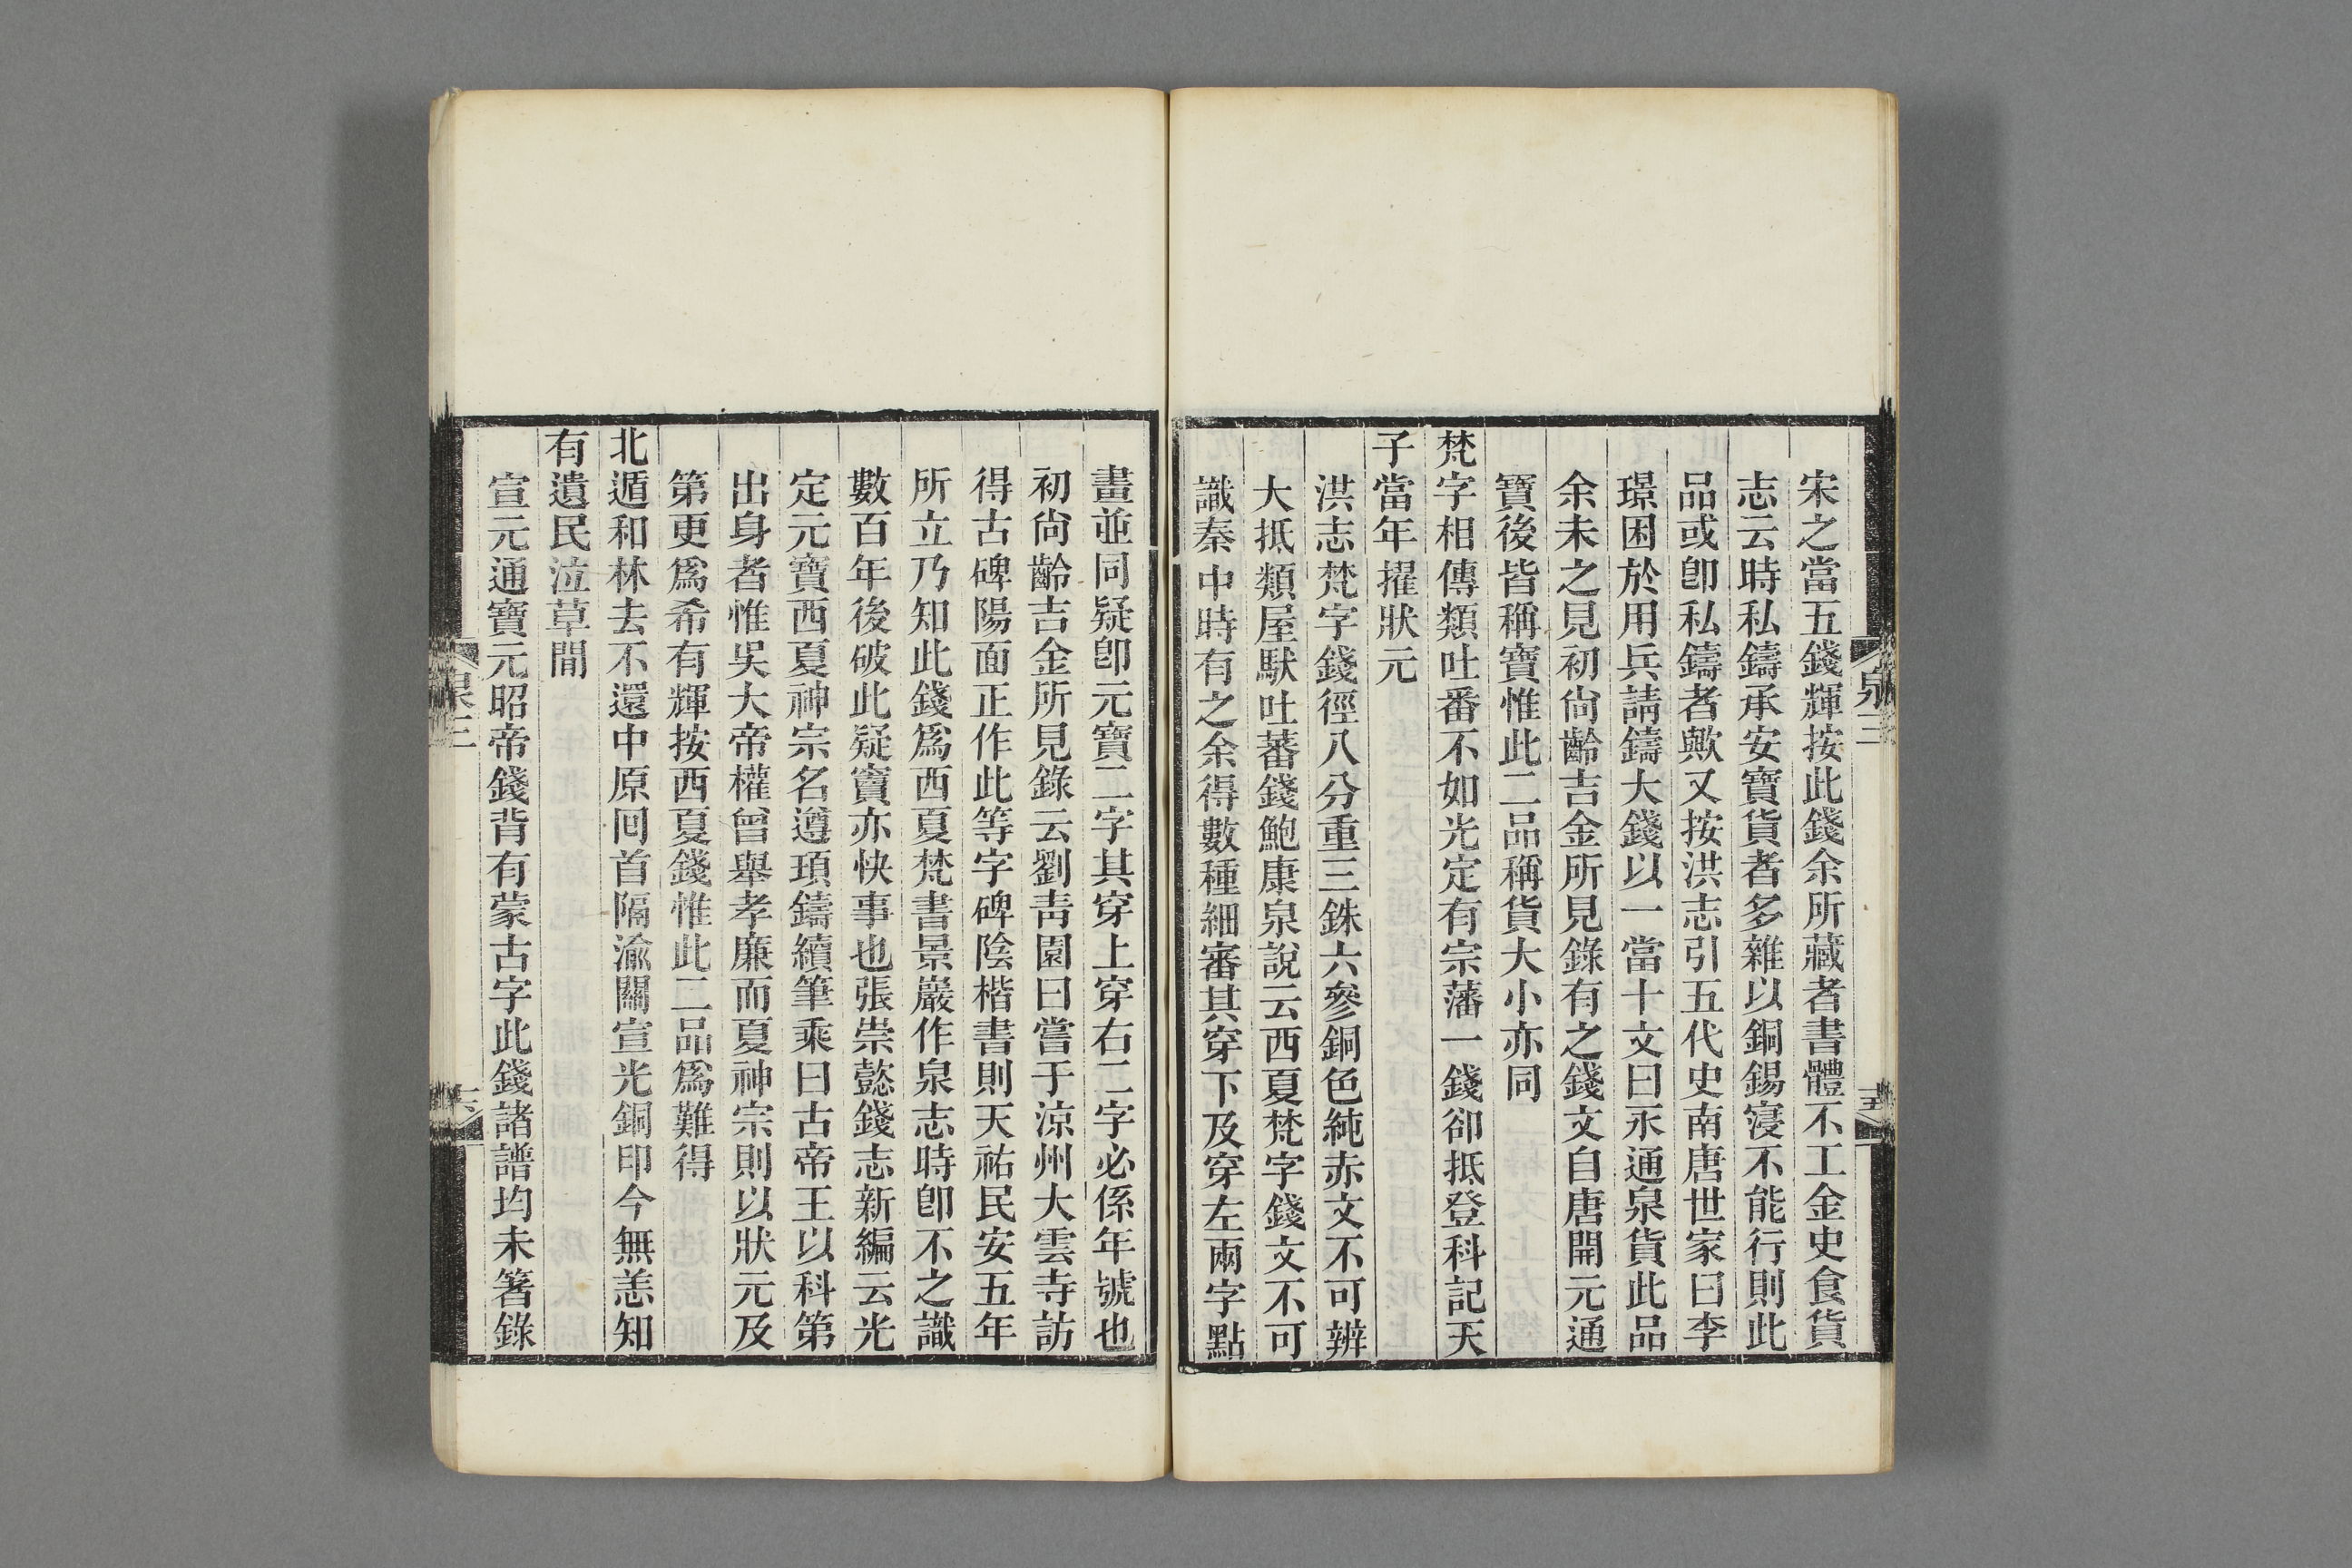 宋之當五錢輝按此錢余所藏者書體不工金史食貨
志云時私鑄承安寶貨者多雜以銅錫寖不能行則此
品或卽私鑄者歟又按洪志引五代史南唐世家曰李
璟困於用兵請鑄大錢以一當十文曰永通泉貨此品
余未之見初尙齡吉金所見錄有之錢文自唐開元通
寶後皆稱寶惟此二品稱貨大小亦同
梵字相傳類吐番不如光定有宗藩一錢卻抵登科記天
子當年擢狀元
洪志梵字錢徑八分重三銖六參銅色純赤文不可辨
大抵類屋馱吐蕃錢鮑康泉說云西夏梵字錢文不可
識秦中時有之余得數種細審其穿下及穿左兩字點
畫並同疑卽元寶二字其穿上穿右二字必係年號也
初尙齡吉金所見錄云劉靑園曰嘗于涼州大雲寺訪
得古碑陽面正作此等字碑陰楷書則天祐民安五年
所立乃知此錢爲西夏梵書景巖作泉志時卽不之識
數百年後破此疑竇亦快事也張崇懿錢志新編云光
定元寶西夏神宗名遵頊鑄續筆乘曰古帝王以科第
出身者惟吳大帝權曾舉孝廉而夏神宗則以狀元及
第更爲希有輝按西夏錢惟此二品爲難得
北遁和林去不還中原回首隔渝關宣光銅印今無恙知
有遺民泣草間
宣元通寶元昭帝錢背有蒙古字此錢諸譜均未箸錄
泉三
五